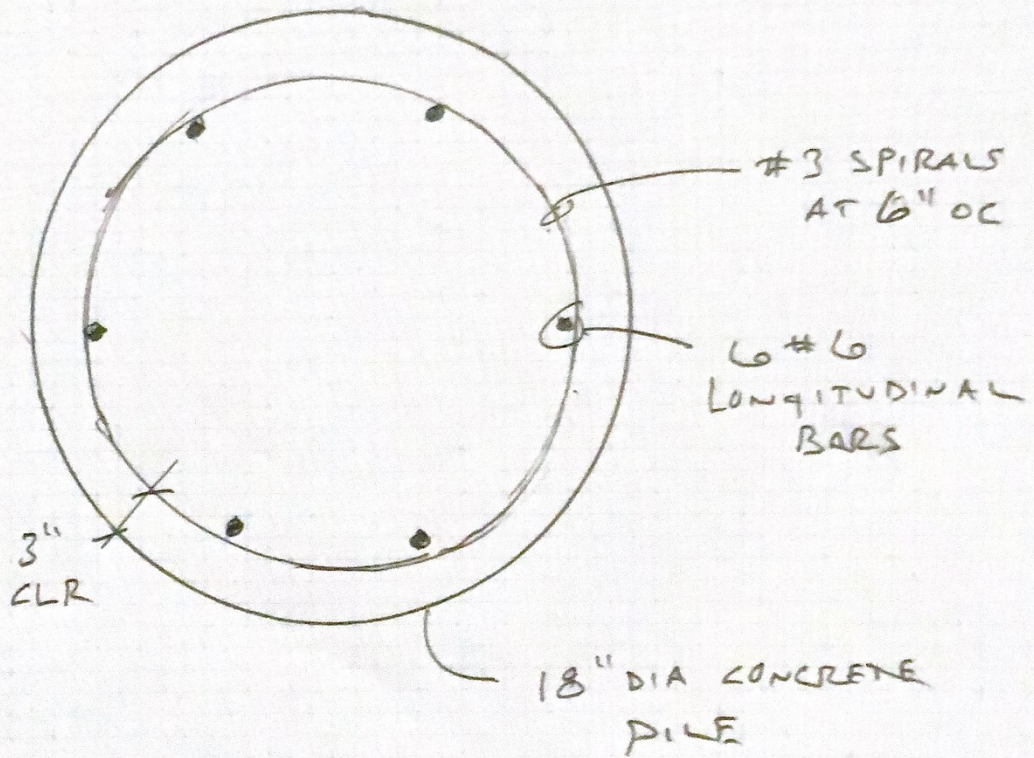 #3 SPIRALS
AT 6" OC
6 #6
LONGITUDINAL
BARS
3"
CLR
18" DIA CONCRETE
PILE